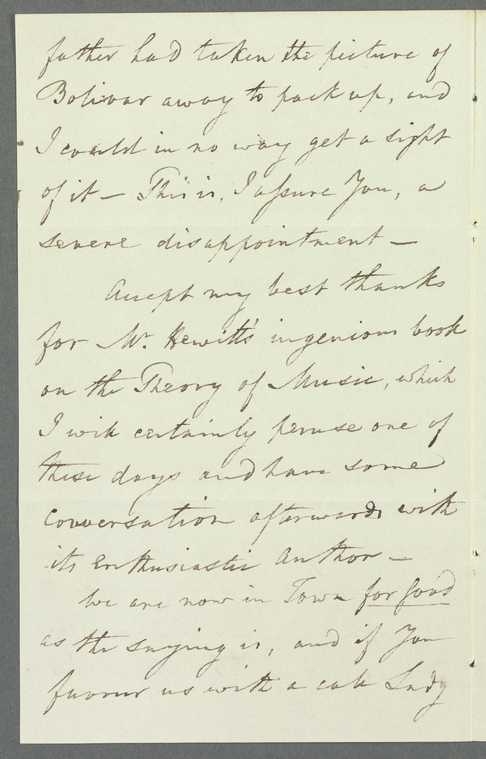 father had taken the picture of
Bolivar away to pack up, and
I could in no way get a sight
of it — This is, I assure You, a
severe disappointment —
Accept my best thanks
for Mr. Hewitt's ingenious book
on the Theory of Music, which
I will certainly peruse one of
these days and have some
Conversation afterwards with
its Enthusiastic Author —
We are now in Town for good
as the saying is, and if You
favour us with a call Lady